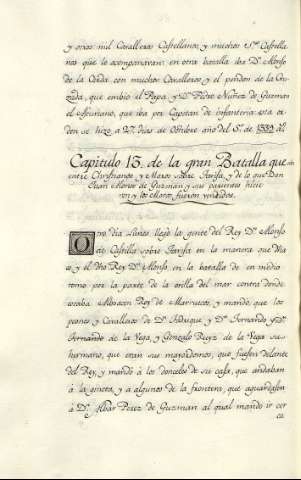 y otros mil Cavalleros Castellanos, y muchos Sres. Castella
nos que lo acompañavan: en otra batalla iba Dn. Alonso
de la Cerda con muchos Cavalleros, y el pendon de la Cru
zada, que embio el Papa, y Dn. Pedro Nuñez de Guzman
el Asturiano, que iba por Capitan de Infanteria: esta or
den se hizo a 27. dias de Octubre año del Sr. de 1339.
Capitulo 13. de la gran Batalla que
entre Christianos, y Moros sobre Tarifa, y de lo que Don
Juan Alonso de Guzman y sus parientes hicie
ron y los Moros fueron vencidos.
Otro dia Lunes llegó la gente del Rey Dn. Alonso
de Castilla sobre Tarifa en la manera que dha
es, y el dho Rey Dn. Alonso en la batalla de en medio
tomo por la parte de la orilla del mar contra donde
estaba Albohacen Rey de Marruecos, y mandó, que los
peones y Cavalleros de Dn. Fadrique, y Dn. Fernando, y Dn.
Fernando de la Vega, y Gonzalo Ruyz de la Vega su
hermano, que eran sus mayordomos, que fuesen delante
del Rey, y mandó à los donceles de su casa, que andaban
à la gineta, y à algunos de la frontera, que aguardasen
à Dn. Albar Perez de Guzman al qual mandó ir cer
ca